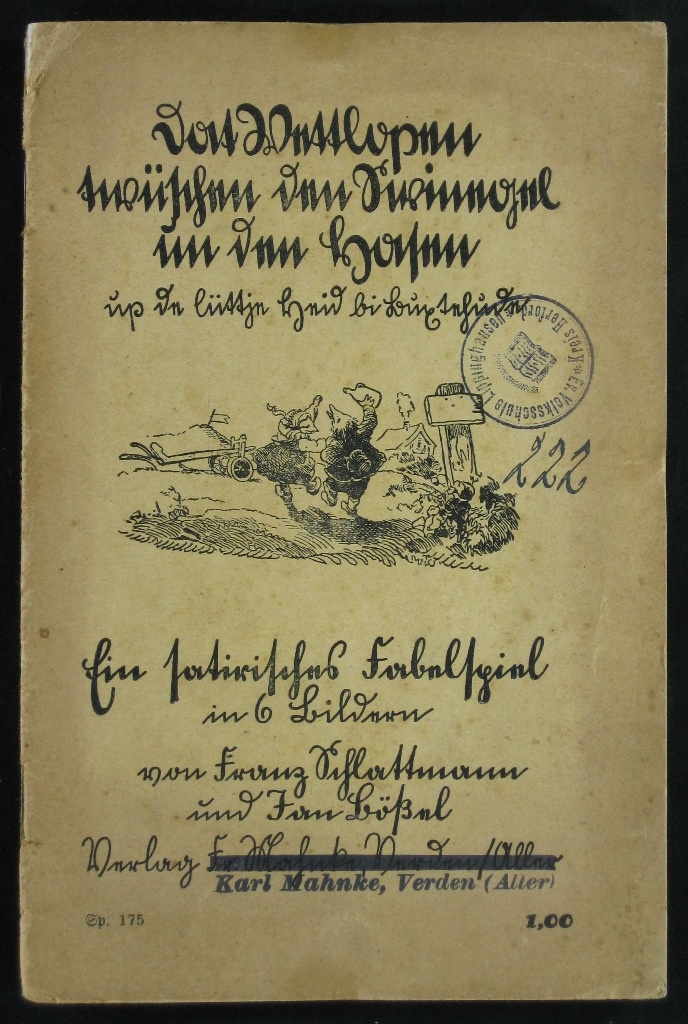 Dat Wettlopen
twüschen den Swinegel
un den Hasen
up de lüttje Heid bi Buxtehude
Ev. Volksschule Lippinghausen * Kreis Herford *
222
Ein satirisches Fabelspiel
in 6 Bildern
von Franz Schlattmann
und Jan Bößel
Verlag Fr Mahnke, Verden/Aller
Karl Mahnke, Verden (Aller)
Sp. 175
1,00